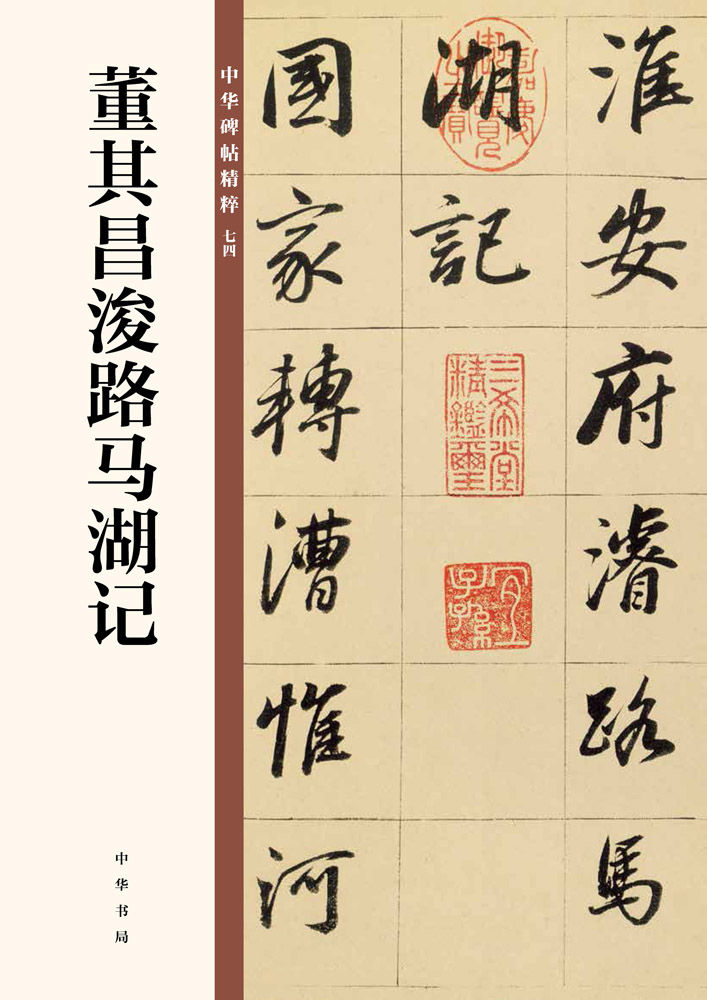 董其昌浚路马湖记
中华碑帖精粹 七四
中华书局
淮安府濬路馬
湖記
國家轉漕惟河
嘉慶御覽之寶
三希堂精鑑璽
宜子孫